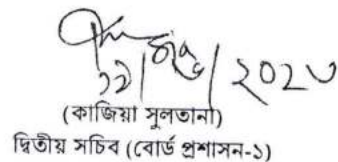 ২০২৩
(কাজিয়া সুলতানা)
দ্বিতীয় সচিব (বোর্ড প্রশাসন-১)